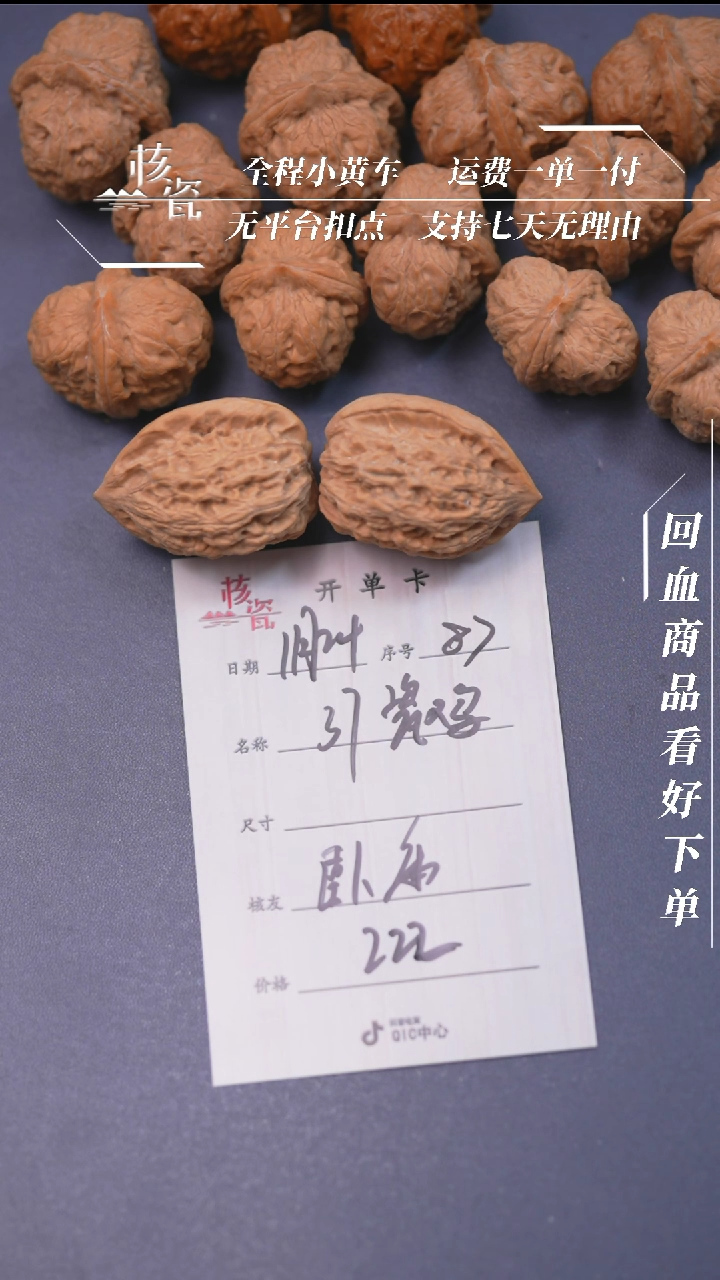 核瓷
全程小黄车 运费一单一付
无平台扣点 支持七天无理由
回血商品看好下单
核瓷 开单卡
日期 11月24 序号 87
名称 37瓷
尺寸
核友 卧
价格 222
QIC中心